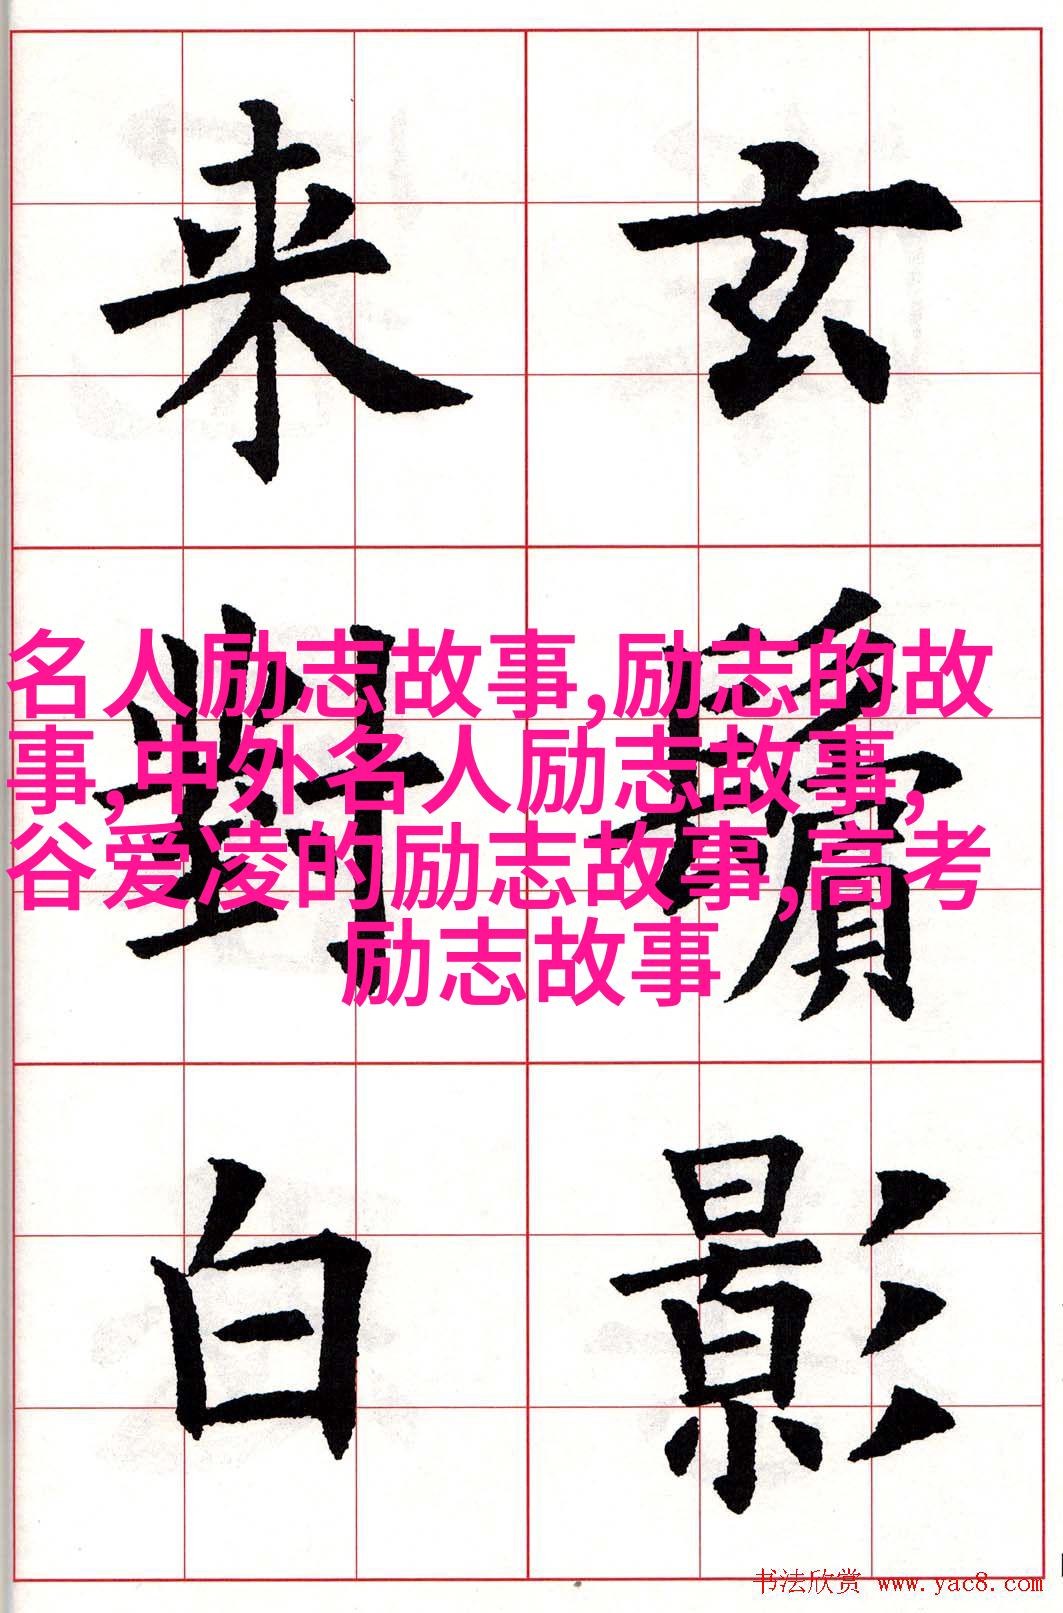 玄鬢影
来對白
名人励志故事,励志的故
事,中外名人励志故事,
谷爱凌的励志故事,高考
励志故事
书法欣赏 www.yac8.com